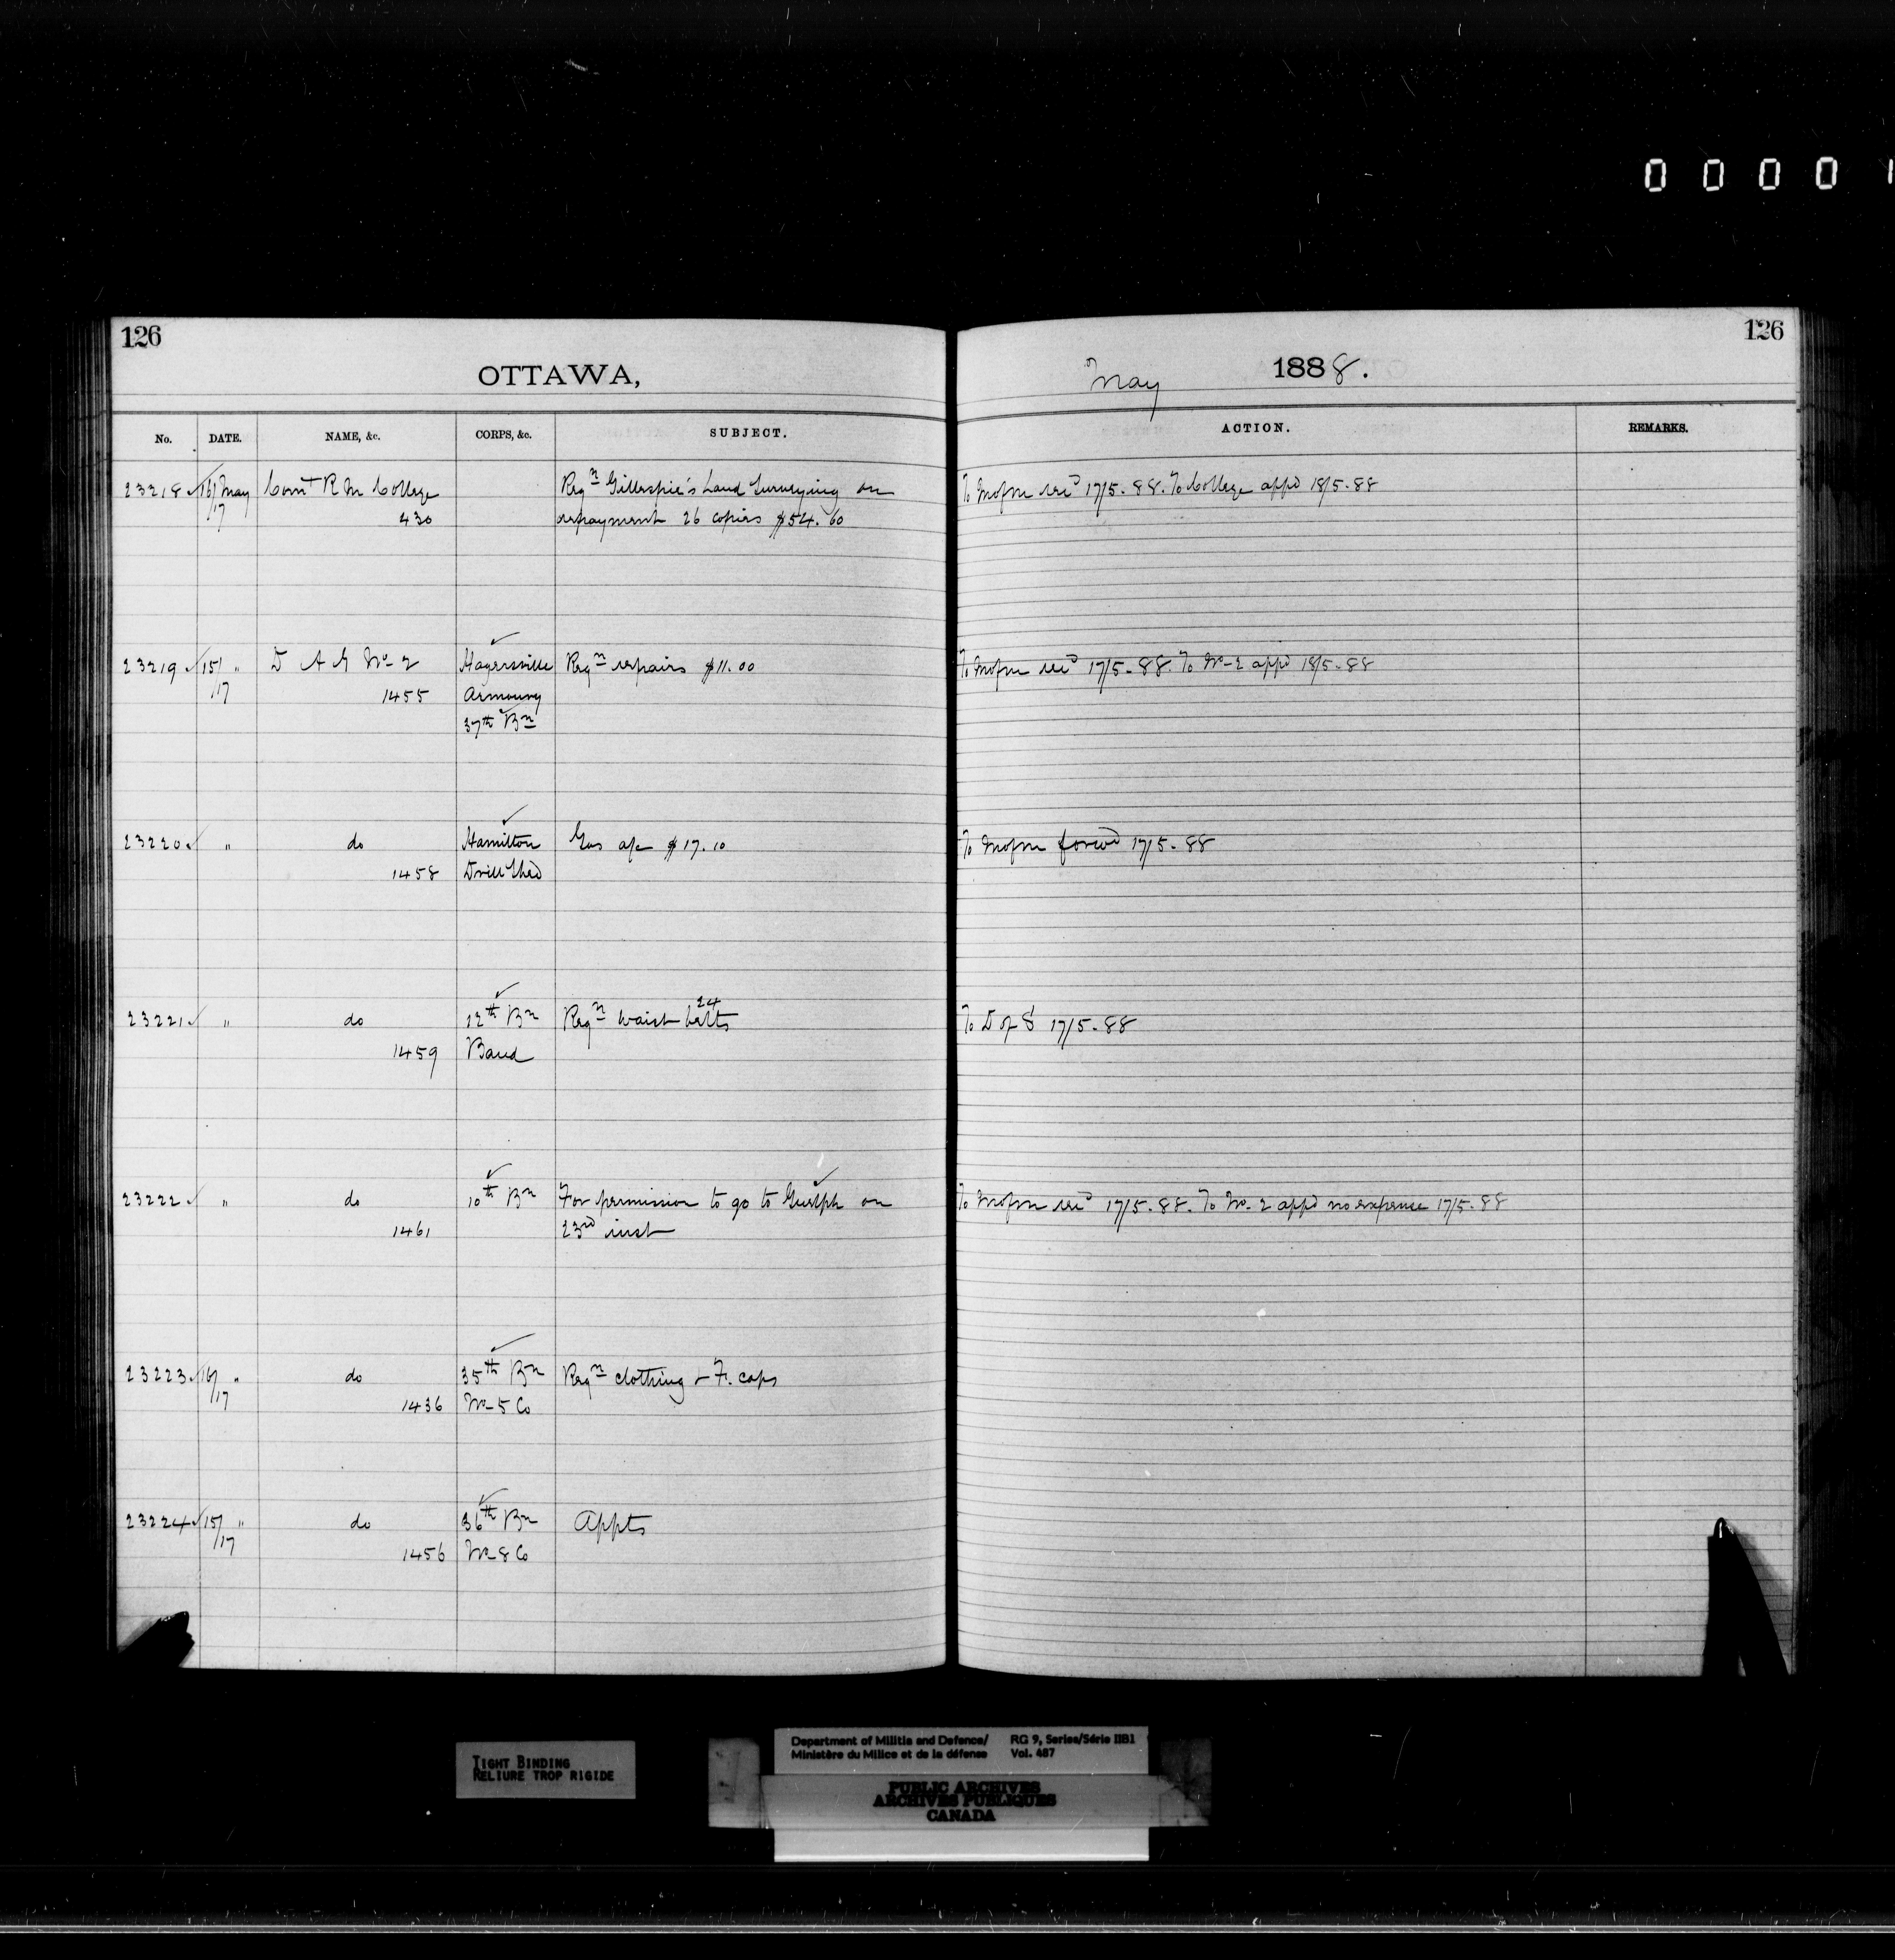 0 0 0 0 1
126
126
OTTAWA,
May 1888.
No. DATE. NAME, &c. CORPS, &c. SUBJECT. ACTION. REMARKS.
23218 16/ May Comt R M College Reqn Gillespie's Land Surveying on To Mofm recd 17/5-88. To College appd 18/5-88
/17 430 repayment 26 copies $54.60
23219 15/ " D A G No-2 Hagersville Reqn repairs $11.00 To Mofm recd 17/5-88. To No-2 appd 18/5-88
/17 1455 Armoury
37th Bn
23220 " do Hamilton Gas a/c $17.10 To Mofm forwd 17/5-88
1458 Drill Shed
24
23221 " do 12th Bn Reqn waist belts To D of S 17/5-88
1459 Band
23222 " do 10th Bn For permission to go to Guelph on To Mofm recd 17/5-88. To No-2 appd no expense 17/5-88
1461 23rd inst
23223 16/ " do 35th Bn Reqn clothing & F. caps
/17 1436 No-5 Co
23224 15/ " do 36th Bn Appts
/17 1456 No-8 Co
TIGHT BINDING
RELIURE TROP RIGIDE
Department of Militia and Defence/ RG 9, Series/Série IIB1
Ministère du Milice et de la défense Vol. 487
PUBLIC ARCHIVES
ARCHIVES PUBLIQUES
CANADA